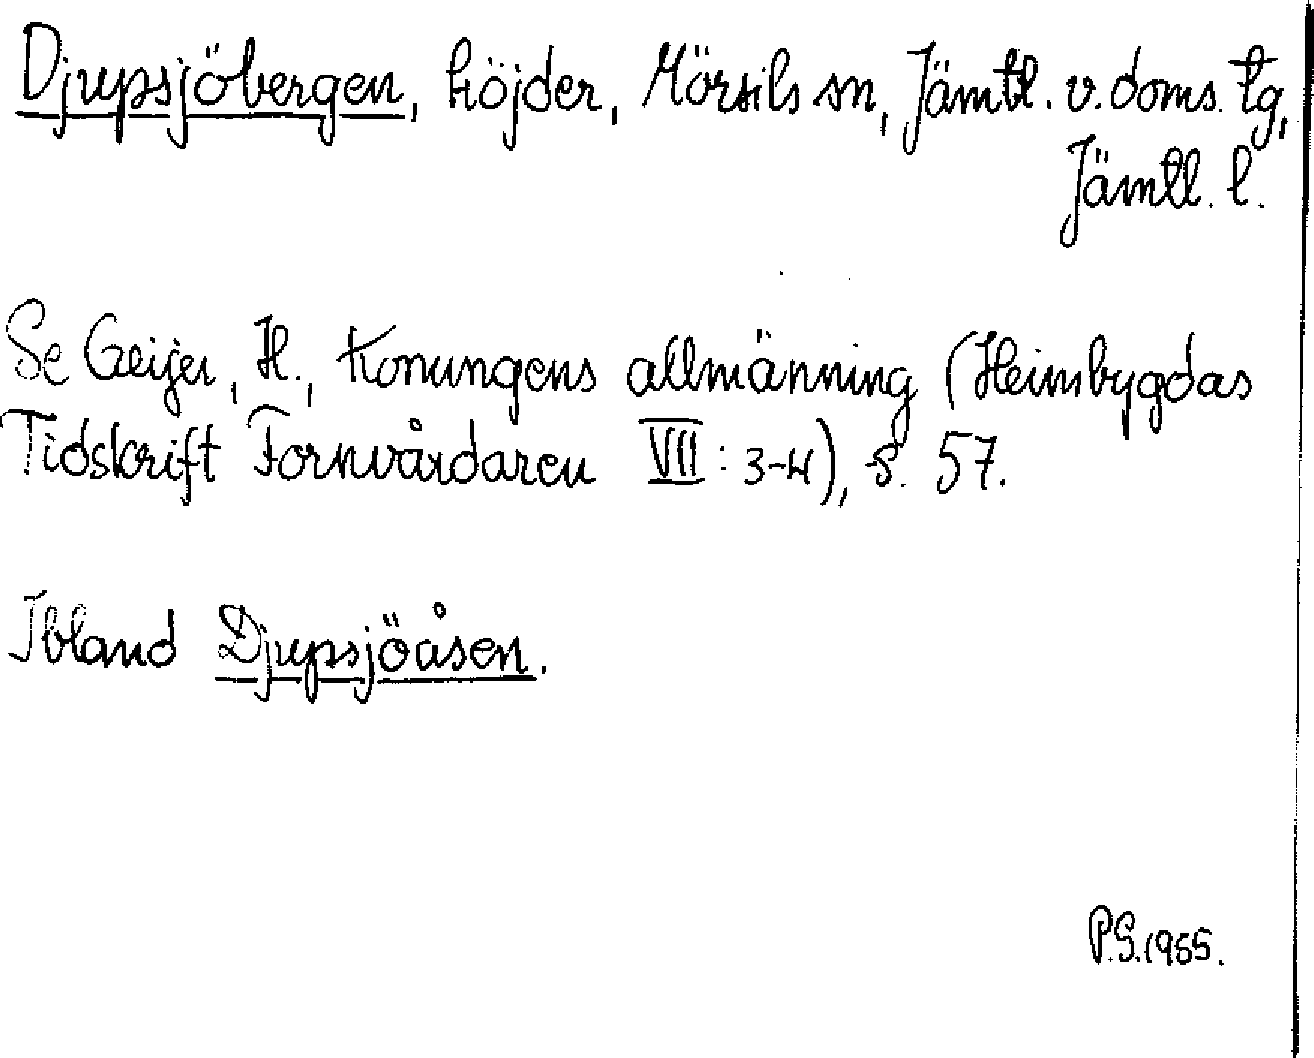 Djupsjöbergen, höjder, Mörsils sn, Jämtl. v. doms. tg,
Jämtl. l.
Se Geijer, H., Konungens allmänning (Heimbygdas
Tidskrift Fornvårdaren VII: 3-4), s. 57.
Ibland Djupsjöåsen.
P.S. 1955.